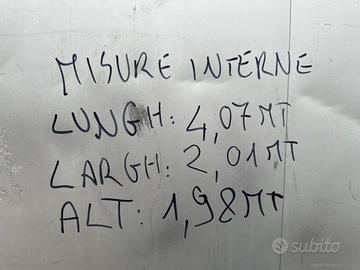 MISURE INTERNE
LUNGH: 4,07MT
LARGH: 2,01MT
ALT: 1,98MT
subito